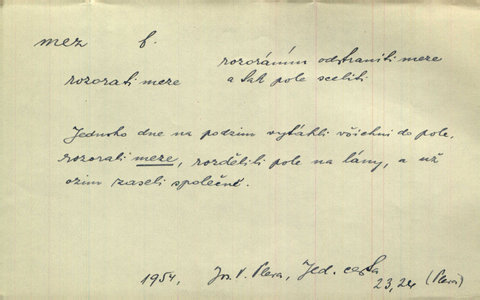 mez f.
rozoráním odstraniti meze
rozorati meze a tak pole sceliti
Jednoho dne na podzim vytáhli všichni do pole,
rozorali meze, rozdělili pole na lány, a už
ozim zaseli společně.
1954, Jos. V. Pleva, Jed. cesta
23,24 (Pleva)